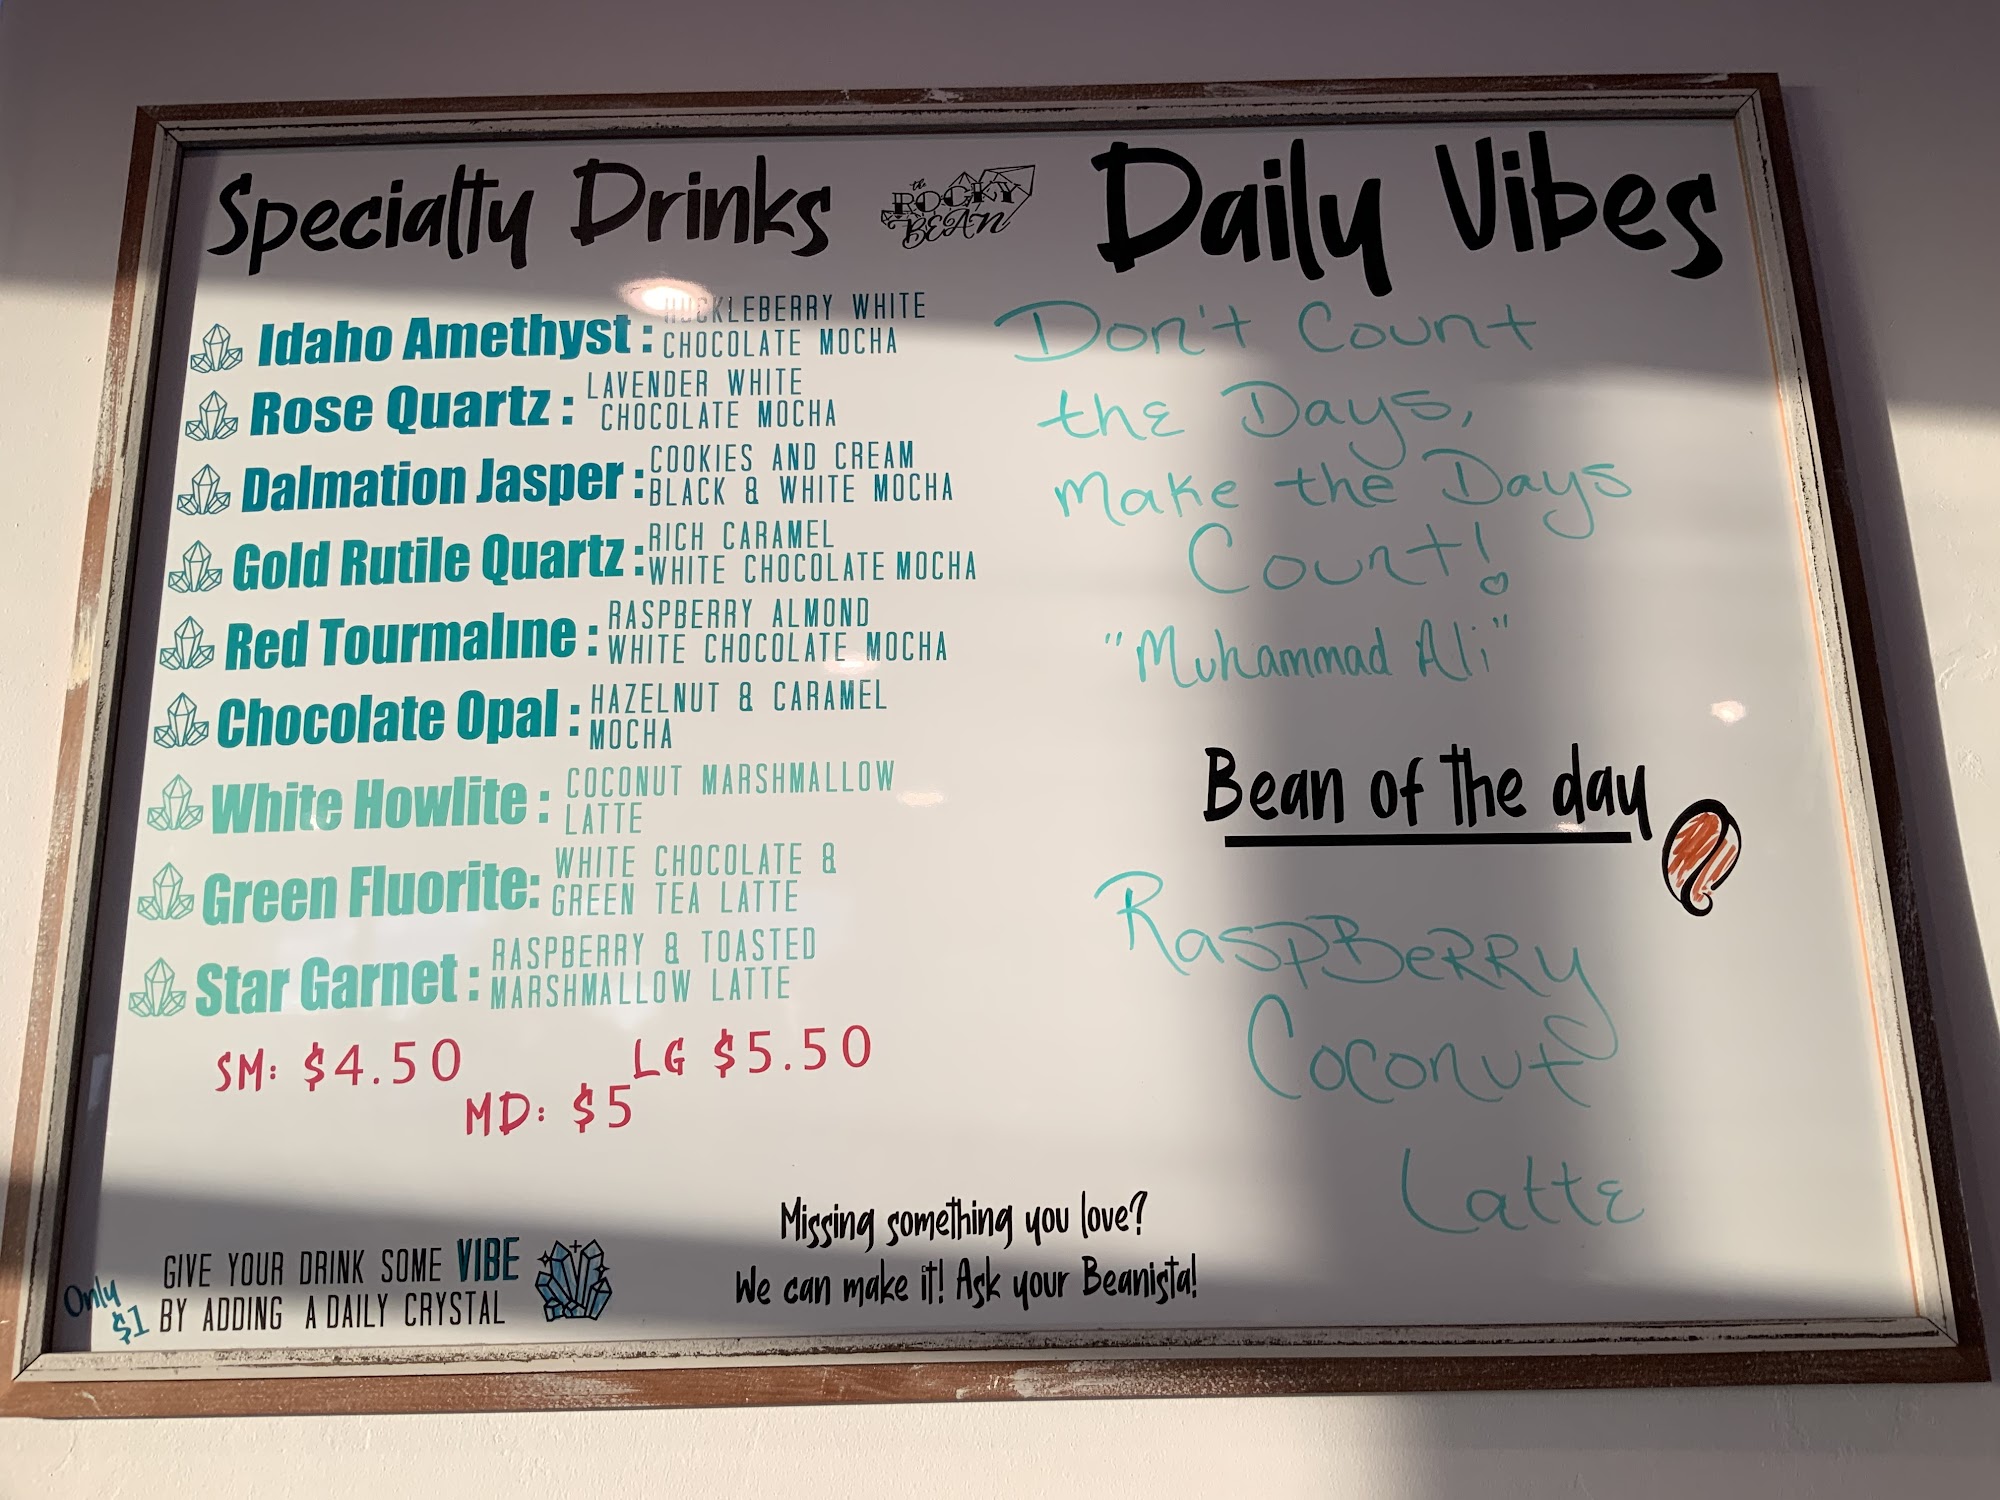 Specialty Drinks
the ROCKY BEAN
Idaho Amethyst : HUCKLEBERRY WHITE
CHOCOLATE MOCHA
Rose Quartz : LAVENDER WHITE
CHOCOLATE MOCHA
Dalmation Jasper : COOKIES AND CREAM
BLACK & WHITE MOCHA
Gold Rutile Quartz : RICH CARAMEL
WHITE CHOCOLATE MOCHA
Red Tourmaline : RASPBERRY ALMOND
WHITE CHOCOLATE MOCHA
Chocolate Opal : HAZELNUT & CARAMEL
MOCHA
White Howlite : COCONUT MARSHMALLOW
LATTE
Green Fluorite: WHITE CHOCOLATE &
GREEN TEA LATTE
Star Garnet : RASPBERRY & TOASTED
MARSHMALLOW LATTE
SM: $4.50
MD: $5
LG $5.50
GIVE YOUR DRINK SOME VIBE
BY ADDING A DAILY CRYSTAL
Only
$1
Missing something you love?
We can make it! Ask your Beanista!
Daily Vibes
Don't Count
the Days,
Make the Days
Count!
"Muhammad Ali"
Bean of the day
RaspBeRRy
Coconut
Latte